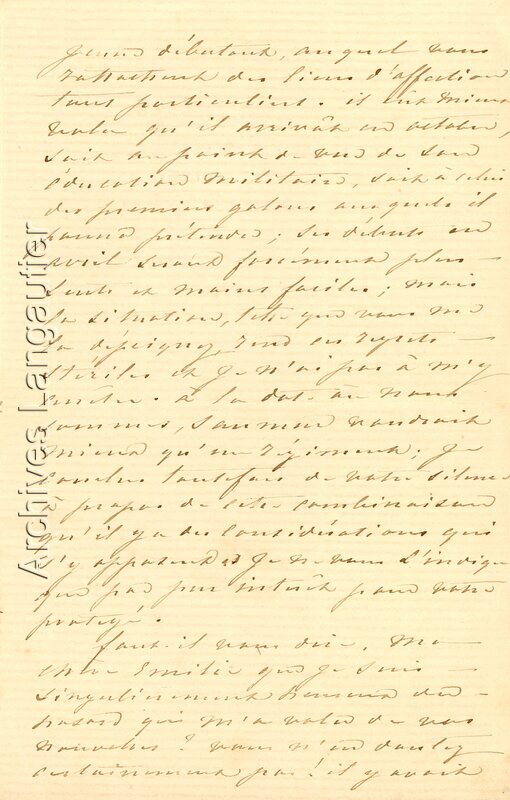 jeune débutant, auquel vous
rattachent des liens d'affection
tout particuliers. il eut mieux
valu qu'il arrivât en octobre,
soit au point de vue de son
éducation militaire, soit à celui
des premiers galons auxquels il
pourra prétendre; ses débuts en
avril seront forcément plus
lents et moins faciles; mais
la situation, telle que vous me
la dépeignez, rend ces regrets
stériles et je n'ai pas à m'y
arrêter. à la date où nous
sommes, Saumur vaudrait
mieux qu'un régiment; je
conclus toutefois de votre silence
à propos de cette combinaison
qu'il y a des considérations qui
s'y opposent et je ne vous l'indique
que par pur intérêt pour votre
protégé.
faut-il vous dire, ma
chère Emilie que je suis
singulièrement heureux du
hasard qui m'a valu de vos
nouvelles? vous n'en doutez
certainement pas! il y avait
Archives Langautier